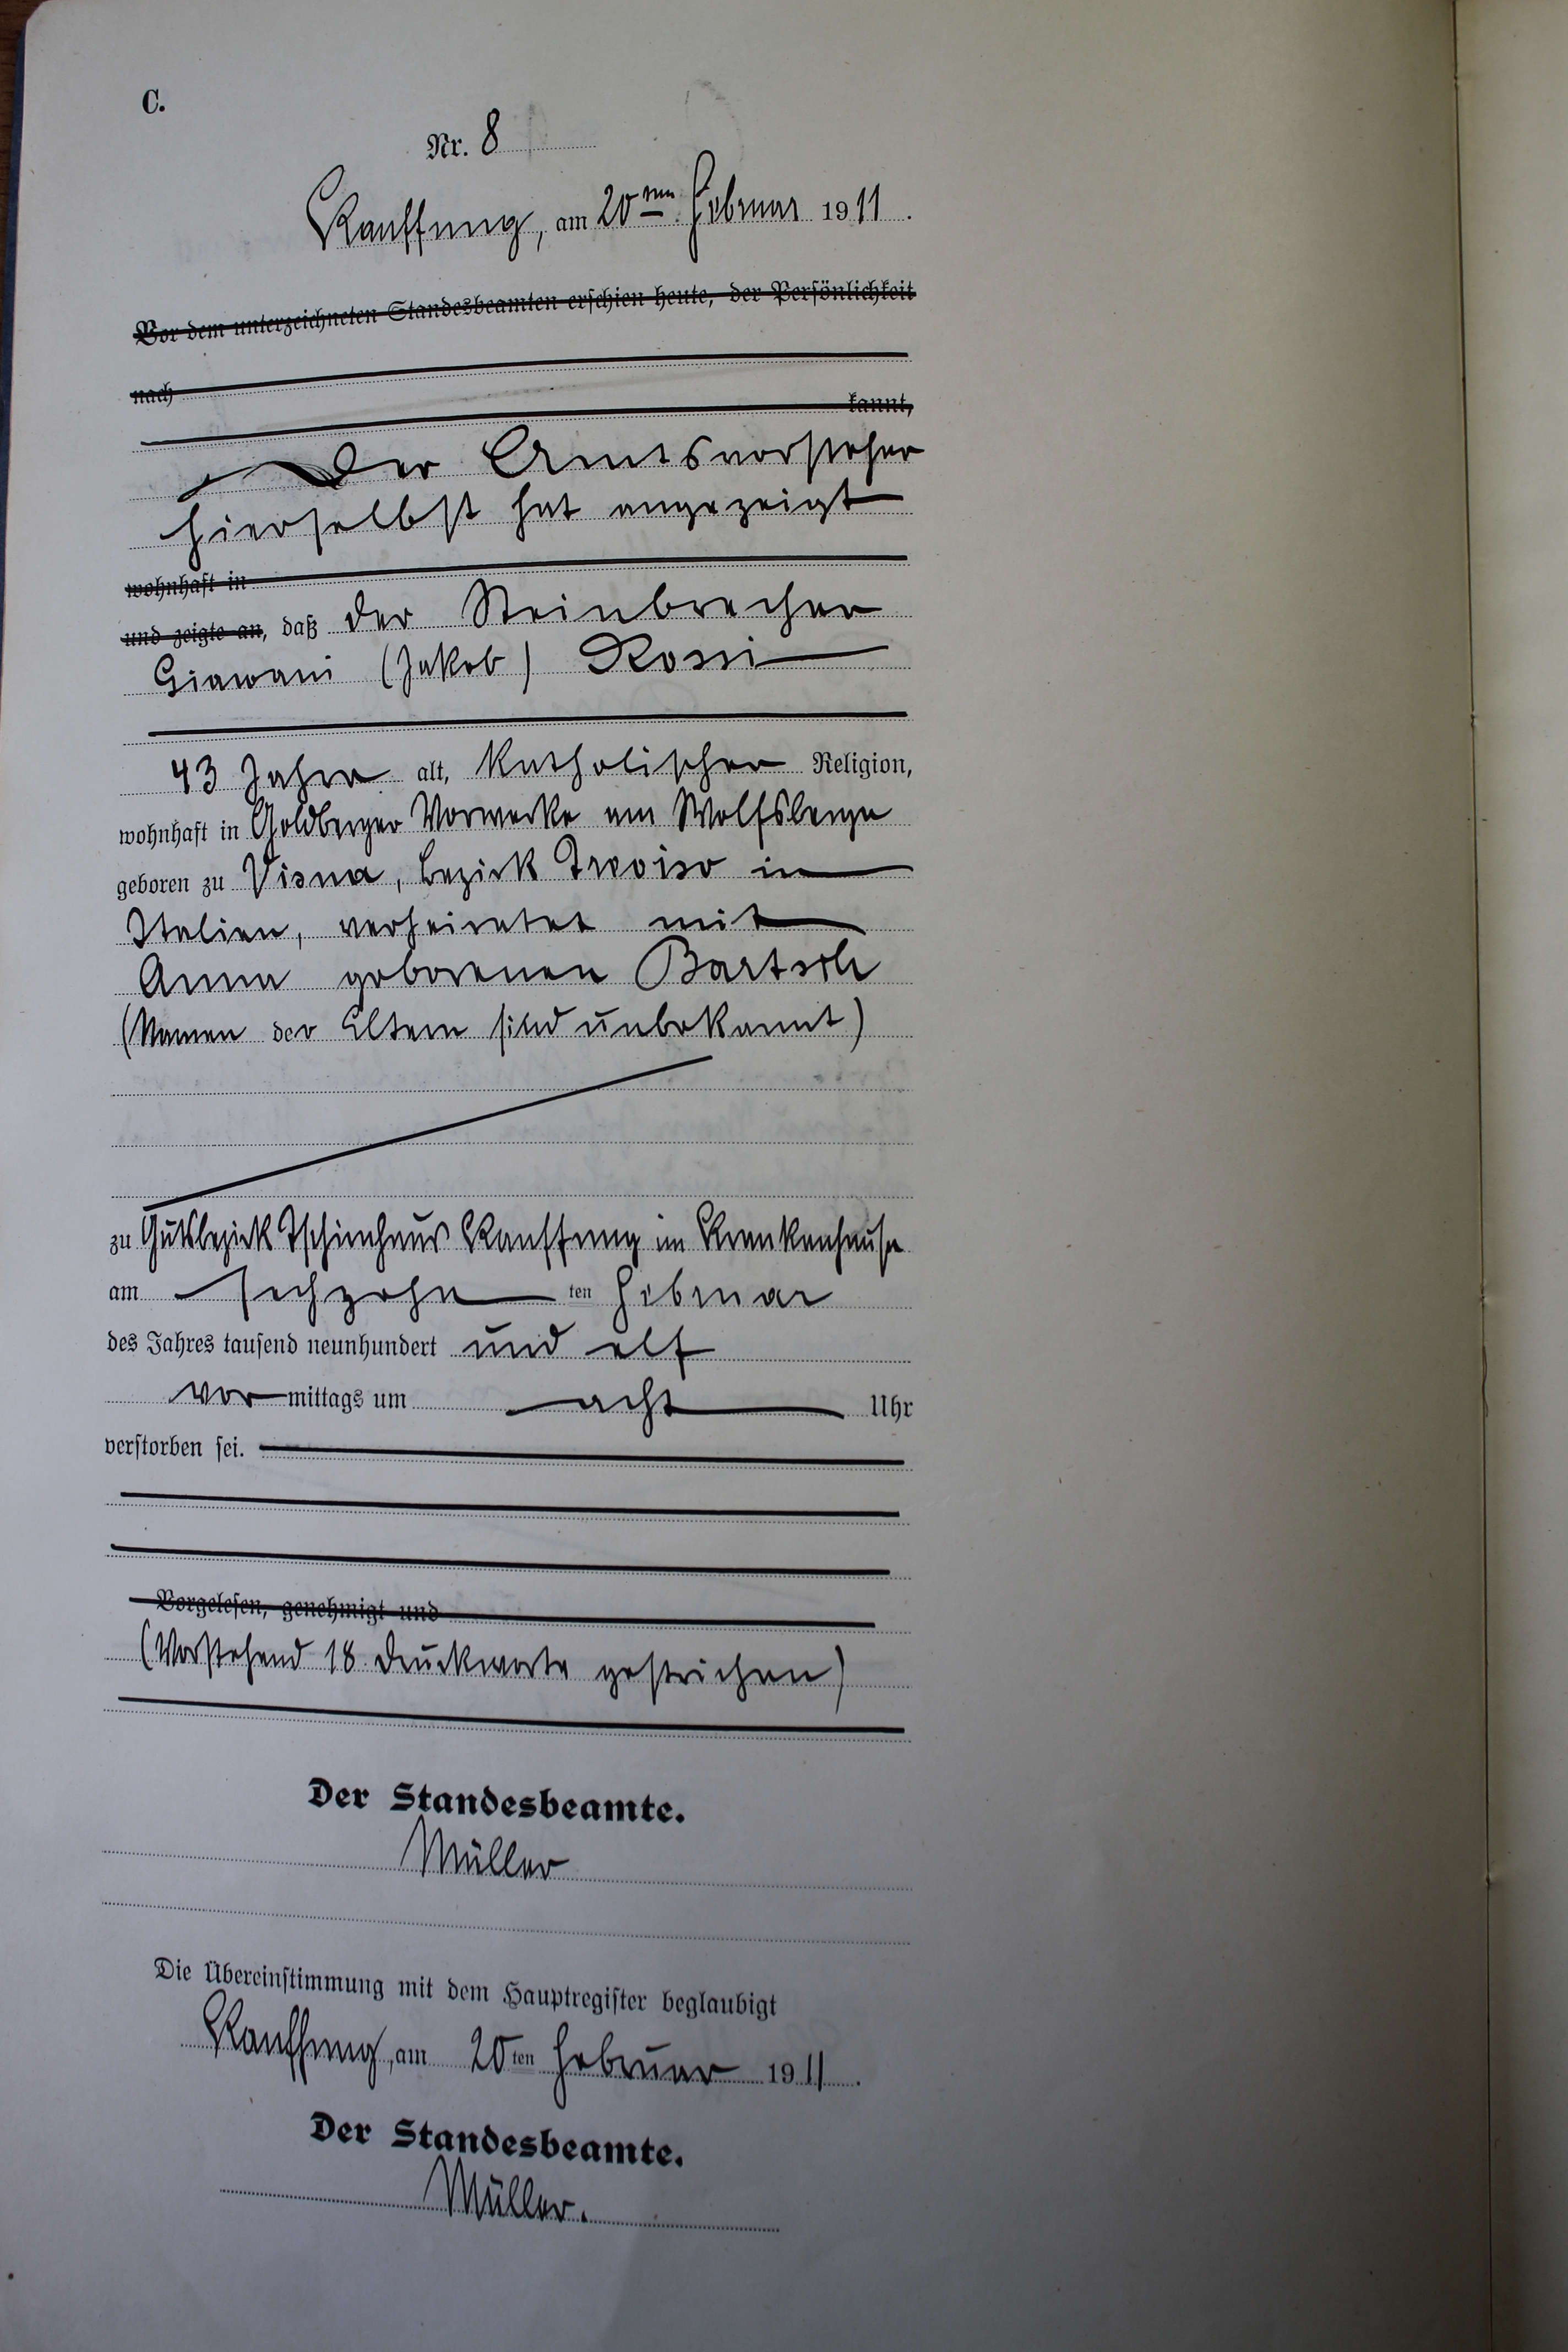 C.
Nr. 8
Kauffung, am 20ten Februar 1911.
Vor dem unterzeichneten Standesbeamten erschien heute, der Persönlichkeit
nach
kannt,
Der Amtsvorsteher
hierselbst hat angezeigt
wohnhaft in
und zeigte an, daß der Steinbrecher
Giawani (Jakob) Rossi
43 Jahre alt, katholischer Religion,
wohnhaft in Goldberger Vorwerke am Wolfsberge
geboren zu Visna, Bezirk Treviso in
Italien, verheiratet mit
Anna geborenen Bartsch
(Namen der Eltern sind unbekannt)
zu Gutsbezirk Tschirnhaus Kauffung im Krankenhause
am sechzehn ten Februar
des Jahres tausend neunhundert und elf
vormittags um acht Uhr
verstorben sei.
Vorgelesen, genehmigt und
(Vorstehend 18 Druckworte gestrichen)
Der Standesbeamte.
Müller
Die Übereinstimmung mit dem Hauptregister beglaubigt
Kauffung, am 20ten Februar 1911.
Der Standesbeamte.
Müller.